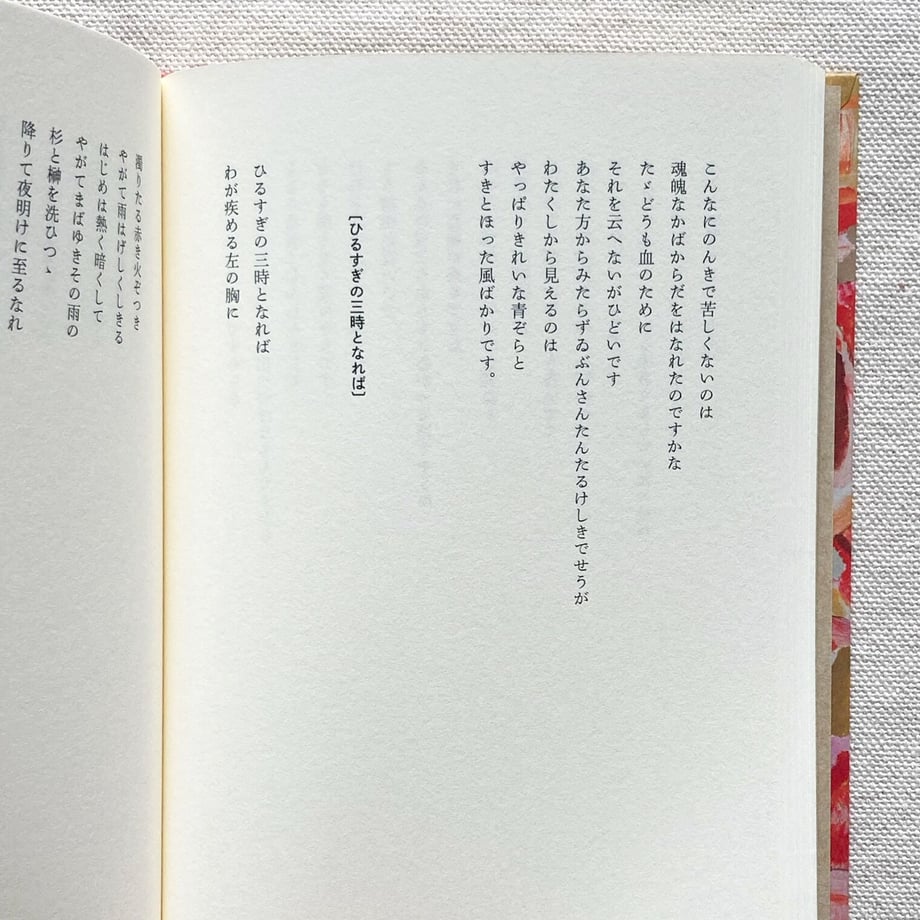 こんなにのんきで苦しくないのは
魂魄なかばからだをはなれたのですかな
たゞどうも血のために
それを云へないがひどいです
あなた方からみたらずゐぶんさんたんたるけしきでせうが
わたくしから見えるのは
やっぱりきれいな青ぞらと
すきとほった風ばかりです。
［ひるすぎの三時となれば］
ひるすぎの三時となれば
わが疾める左の胸に
濁りたる赤き火ぞつき
やがて雨はげしくしきる
はじめは熱く暗くして
やがてまばゆきその雨の
杉と榊を洗ひつゝ
降りて夜明けに至るなれ